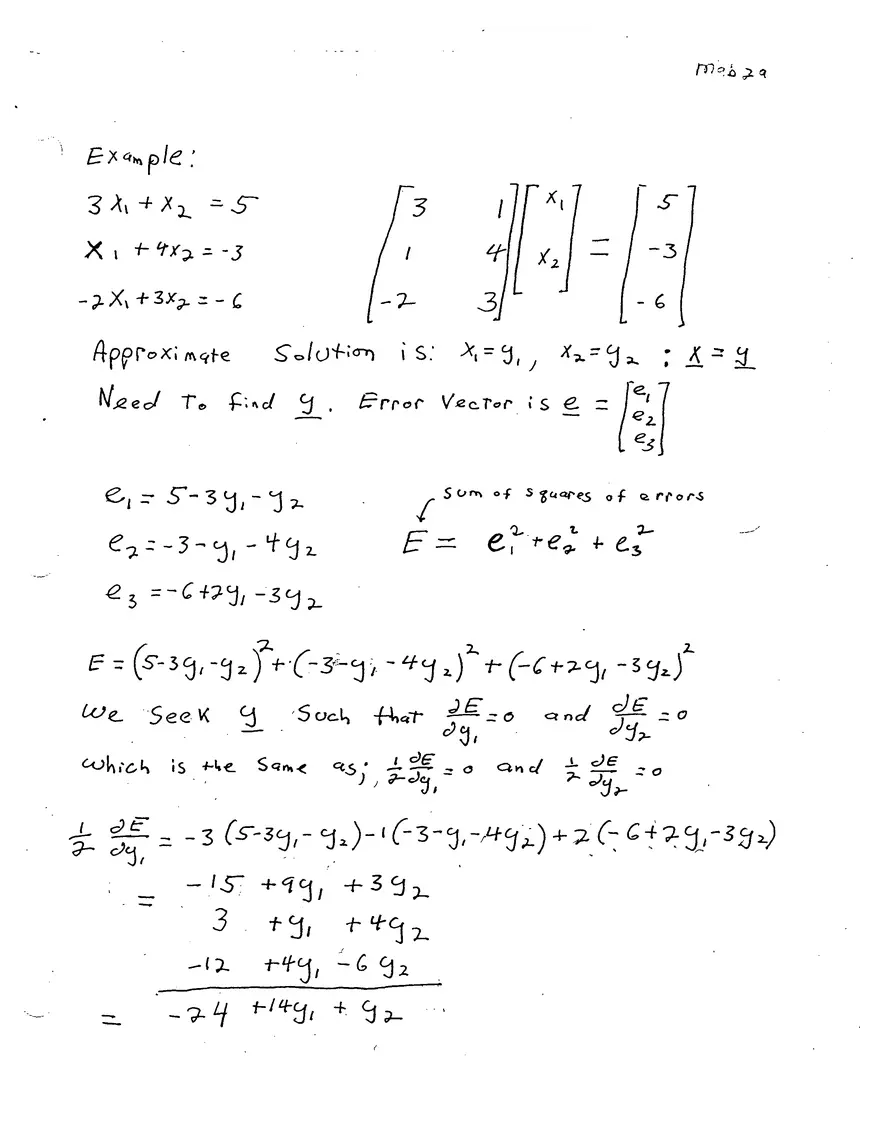 Example:
3x₁ + x₂ = 5
x₁ + 4x₂ = -3
-2x₁ + 3x₂ = -6
[3 1; 1 4; -2 3] [x₁; x₂] = [5; -3; -6]
Approximate Solution is: x₁ = y₁, x₂ = y₂ ; x = y
Need To find y. Error Vector is e = [e₁; e₂; e₃]
e₁ = 5 - 3y₁ - y₂
e₂ = -3 - y₁ - 4y₂
e₃ = -6 + 2y₁ - 3y₂
sum of squares of errors
E = e₁² + e₂² + e₃²
E = (5-3y₁-y₂)² + (-3-y₁-4y₂)² + (-6+2y₁-3y₂)²
We Seek y Such that ∂E/∂y₁ = 0 and ∂E/∂y₂ = 0
which is the Same as; ½ ∂E/∂y₁ = 0 and ½ ∂E/∂y₂ = 0
½ ∂E/∂y₁ = -3(5-3y₁-y₂) -1(-3-y₁-4y₂) + 2(-6+2y₁-3y₂)
= -15 + 9y₁ + 3y₂
3 + y₁ + 4y₂
-12 + 4y₁ - 6y₂
= -24 + 14y₁ + y₂